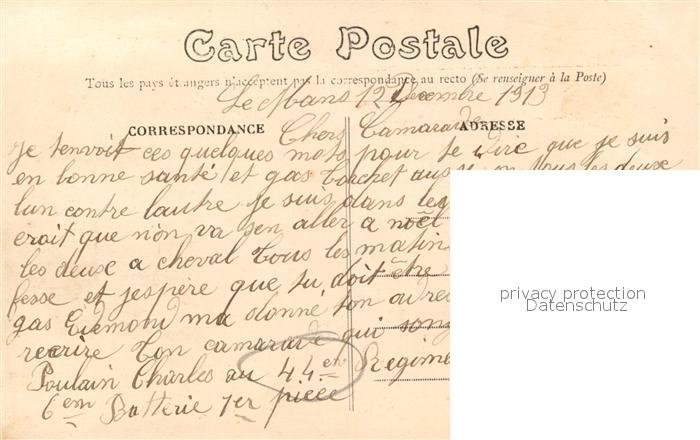 Carte Postale
Tous les pays étrangers n'acceptent pas la correspondance au recto (Se renseigner à la Poste)
Le Mans 12 Decembre 1913
CORRESPONDANCE
ADRESSE
Chers Camarade
Je tenvoit ces quelques mots pour te dire que je suis
en bonne santé et gas aussi on nous les deux
lun contre lautre je suis dans les
croit que n'on va sen aller a noël
les deux a cheval tous les matin
fesse et jespère que tu doit être
gas Edmond ma donné ton adre
reecrire ton camarade qui song
Poulain Charles au 44em Regime
6em Batterie 1er pièce
privacy protection
Datenschutz